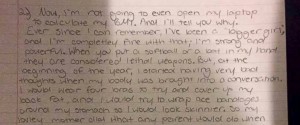 22) Now, I'm not going to even open my laptop
to calculate my BMI. And I'll tell you why.
Ever since I can remember, I've been a "bigger girl"
and I'm completely fine with that; I'm strong and
powerful. When you put a softball or a bat in my hand,
they are considered lethal weapons. But, at the
beginning of the year, I started having very bad
thoughts when my body was brought into a conversation.
I would wear four bras to try and cover up my
back fat, and I would try to wrap ace bandages
around my stomach so I would look skinnier. So my
lovely mother did what any parent would do when